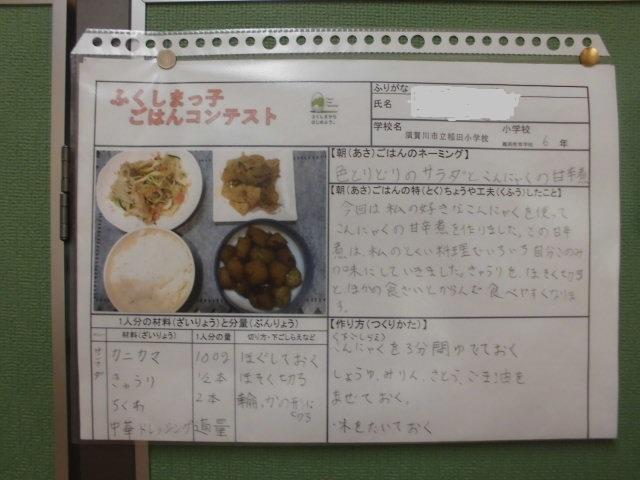 ふくしまっ子
ごはんコンテスト
ふくしまから
はじめよう。
ふりがな
氏名
学校名 須賀川市立稲田小学校 小学校 6 年
【朝(あさ)ごはんのネーミング】
色とりどりのサラダとこんにゃくの甘辛煮
【朝(あさ)ごはんの特(とく)ちょうや工夫(くふう)したこと】
今回は私の好きなこんにゃくを使って
こんにゃくの甘辛煮を作りました。この甘辛
煮は、私のとくい料理でいろいろ自分このみ
の味にしていきました。きゅうりを、ほそく切る
とほかの食ざいとからんで食べやすくなりま
す。
1人分の材料(ざいりょう)と分量(ぶんりょう)
材料(ざいりょう) 1人分の量 切り方・下ごしらえなど
カニカマ 100g ほぐしておく
きゅうり ½本 ほそく切る
ちくわ 2本 輪っかの形に
切る
中華ドレッシング 適量
【作り方(つくりかた)】
(下ごしらえ)
こんにゃくを3分間ゆでておく
しょうゆ、みりん、さとう、ごま油を
まぜておく。
・米をたいておく